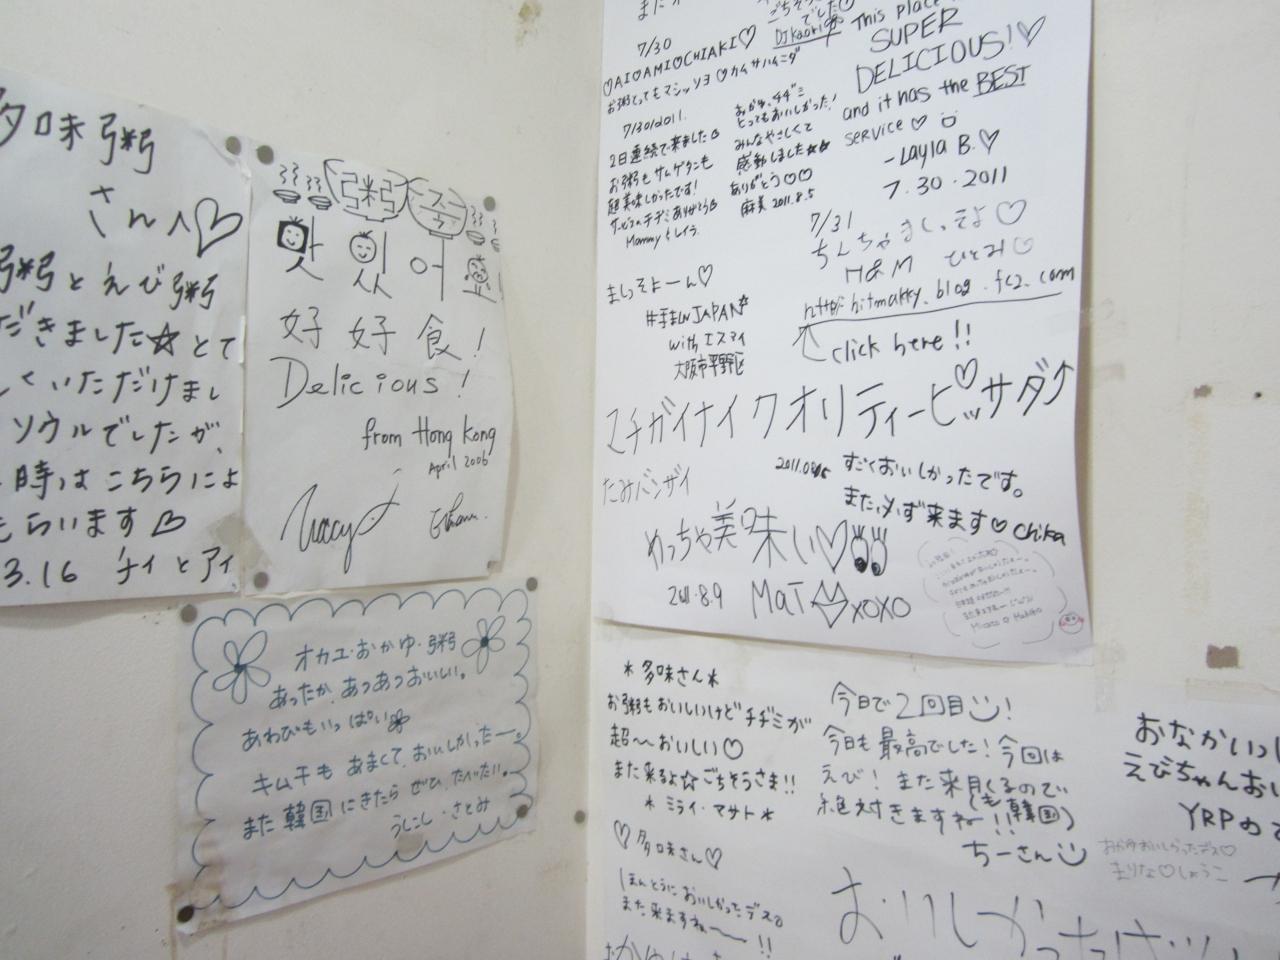 多味粥
さんへ♡
粥とえび粥
だきました☆とて
くいただけまし
ソウルでしたが、
時はこちらによ
もらいます♡
3.16 チイとアイ
粥 죽
맛있어요
好好食!
Delicious!
from Hong Kong
April 2006
オカユ・おかゆ・粥
あったか、あつあつおいしい。
あわびもいっぱい
キムチも あまくて、おいしかったー。
また韓国にきたら ぜひ、たべたい。
うしこし・さとみ
7/30
♡AI♡AMI♡CHIAKI♡
お粥とってもマシッソヨ♡カムサハムニダ
7/30/2011.
2日連続で来ました
お粥もサムゲタンも
超美味しかったです!
サービスのチヂミありがとう
でした
DJ Kaori
おかゆ、チヂミ
とってもおいしかった!
みんなやさしくて
感動しました★★
ありがとう♡♡
麻美 2011.8.5
This place
SUPER
DELICIOUS!♡
and it has the BEST
service♡
-Layla B.♡
7.30.2011
7/31
ちんちゃましっそよ♡
H&M ひとみ
http://hitmakky.blog.fc2.com
click here!!
ましっそよーん♡
JAPAN
with エスマイ
大阪市平野区
マチガイナイクオリティーピッサダ↑
たみバンザイ
2011.08.05
すごくおいしかったです。
また必ず来ます♡ chika
めっちゃ美味しい♡
2011.8.9 MaT xoxo
*多味さん*
お粥もおいしいけどチヂミが
超〜おいしい♡
また来るよ☆ごちそうさま!!
*ミライ・マサト*
♡多味さん♡
ほんとうにおいしかったデス。
また来ますね〜!!
今日で2回目!
今日も最高でした!今回は
えび!また来月くるので
(も韓国)
絶対きますねー!!
ちーさん
おなかいっ
えびちゃんおい
YRPの
おかゆおいしかったデス♡
まりな♡しょうこ